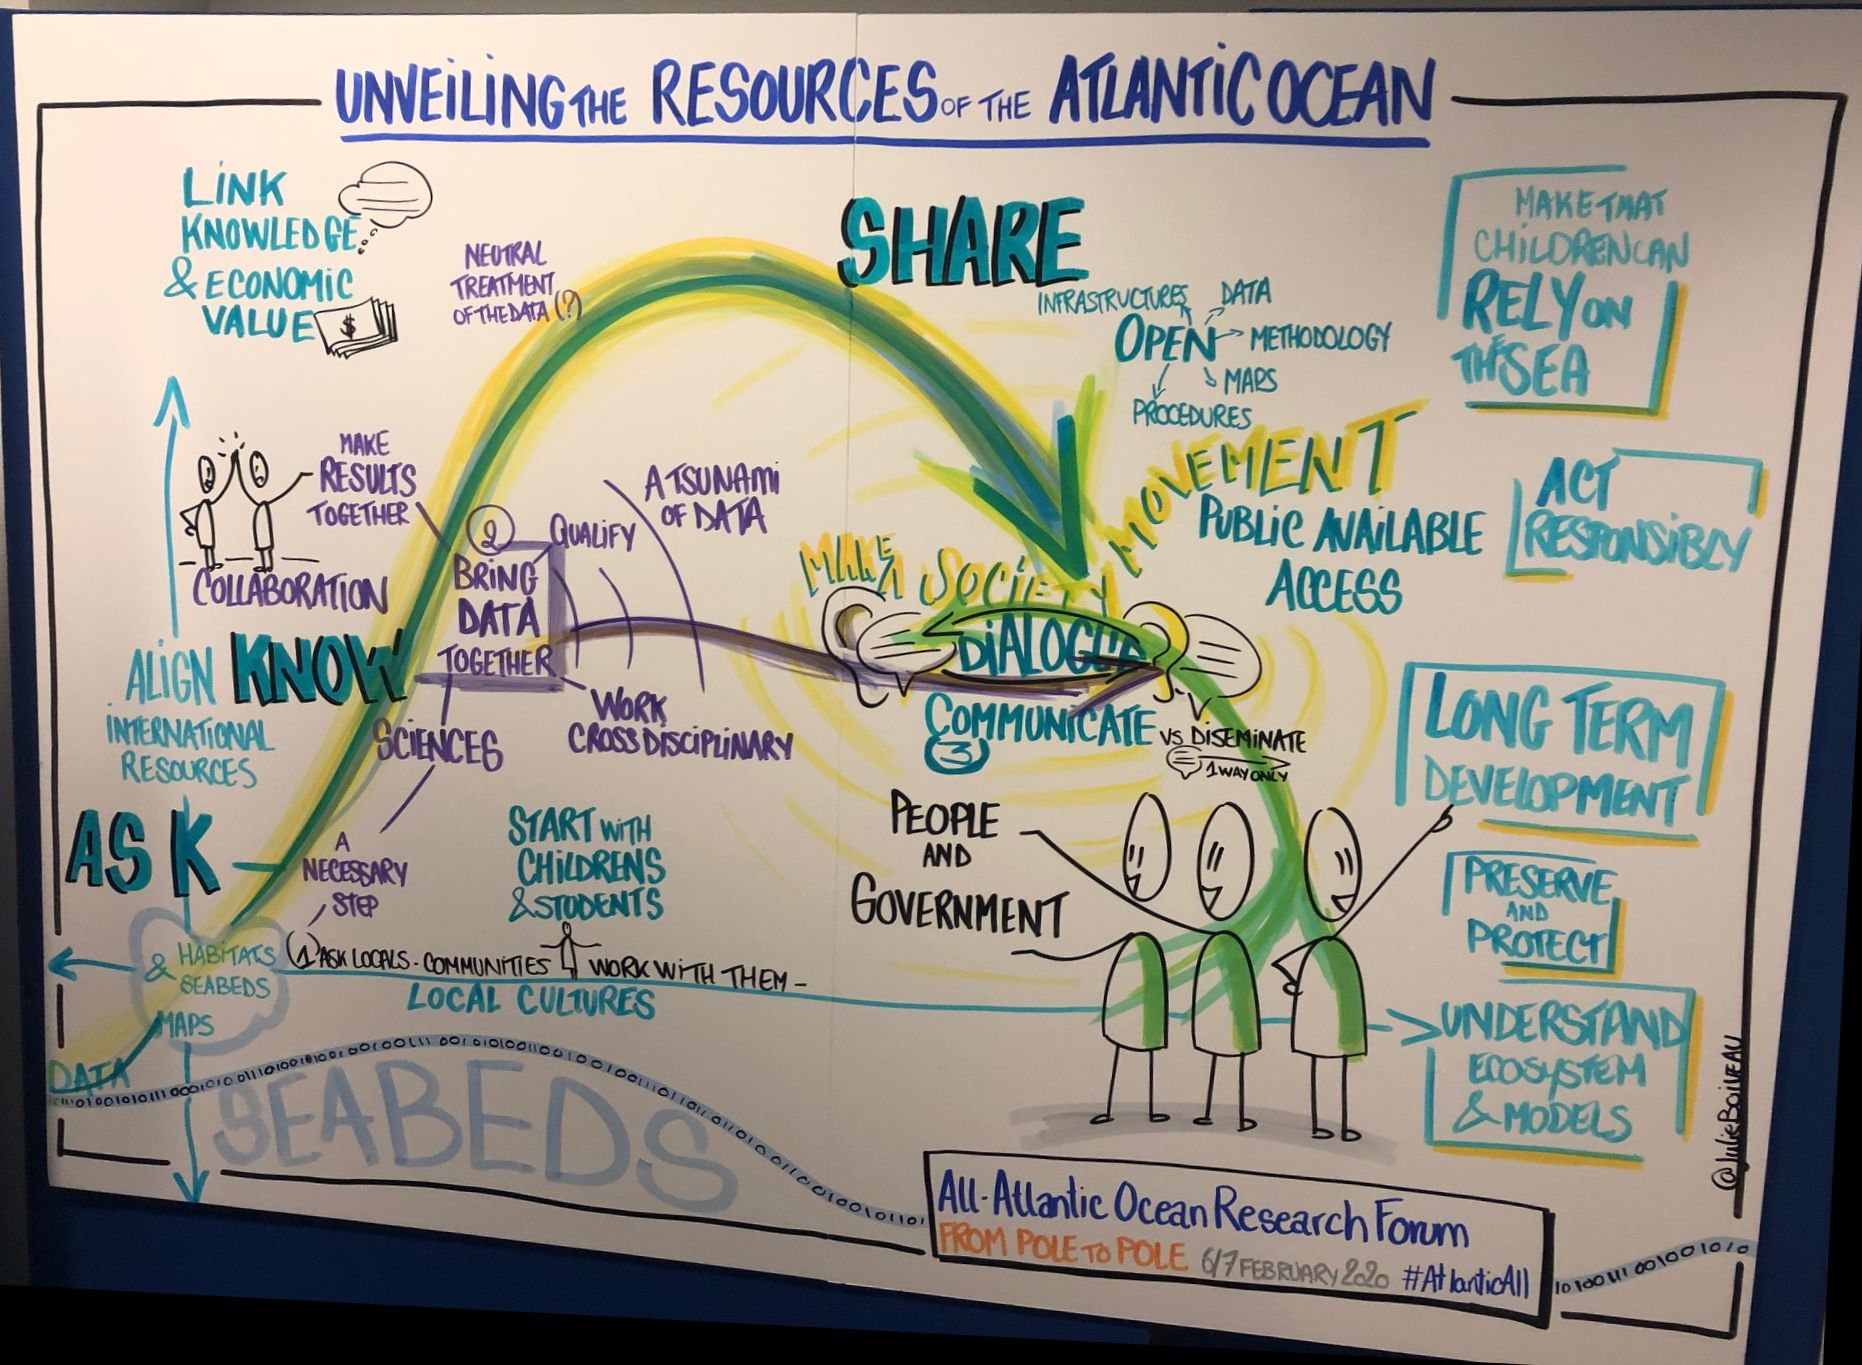 UNVEILING THE RESOURCES OF THE ATLANTIC OCEAN
LINK
KNOWLEDGE
& ECONOMIC
VALUE
$
NEUTRAL
TREATMENT
OF THE DATA (?)
SHARE
INFRASTRUCTURES
DATA
OPEN
METHODOLOGY
MAPS
PROCEDURES
MAKE THAT
CHILDREN CAN
RELY ON
THE SEA
MAKE
RESULTS
TOGETHER
COLLABORATION
2
QUALIFY
BRING
DATA
TOGETHER
A TSUNAMI
OF DATA
MOVEMENT
PUBLIC AVAILABLE
ACCESS
MAKE A SOCIETY
DIALOGUE
ACT
RESPONSIBLY
ALIGN
INTERNATIONAL
RESOURCES
KNOW
SCIENCES
WORK
CROSS DISCIPLINARY
COMMUNICATE
3
VS DISEMINATE
1 WAY ONLY
LONG TERM
DEVELOPMENT
ASK
A
NECESSARY
STEP
START WITH
CHILDRENS
& STUDENTS
PEOPLE
AND
GOVERNMENT
PRESERVE
AND
PROTECT
& HABITATS
SEABEDS
MAPS
1 ASK LOCALS - COMMUNITIES WORK WITH THEM -
LOCAL CULTURES
UNDERSTAND
ECOSYSTEM
& MODELS
DATA
SEABEDS
All-Atlantic Ocean Research Forum
FROM POLE TO POLE 6/7 FEBRUARY 2020 #AtlanticAll
@JULIEBOIVEAU